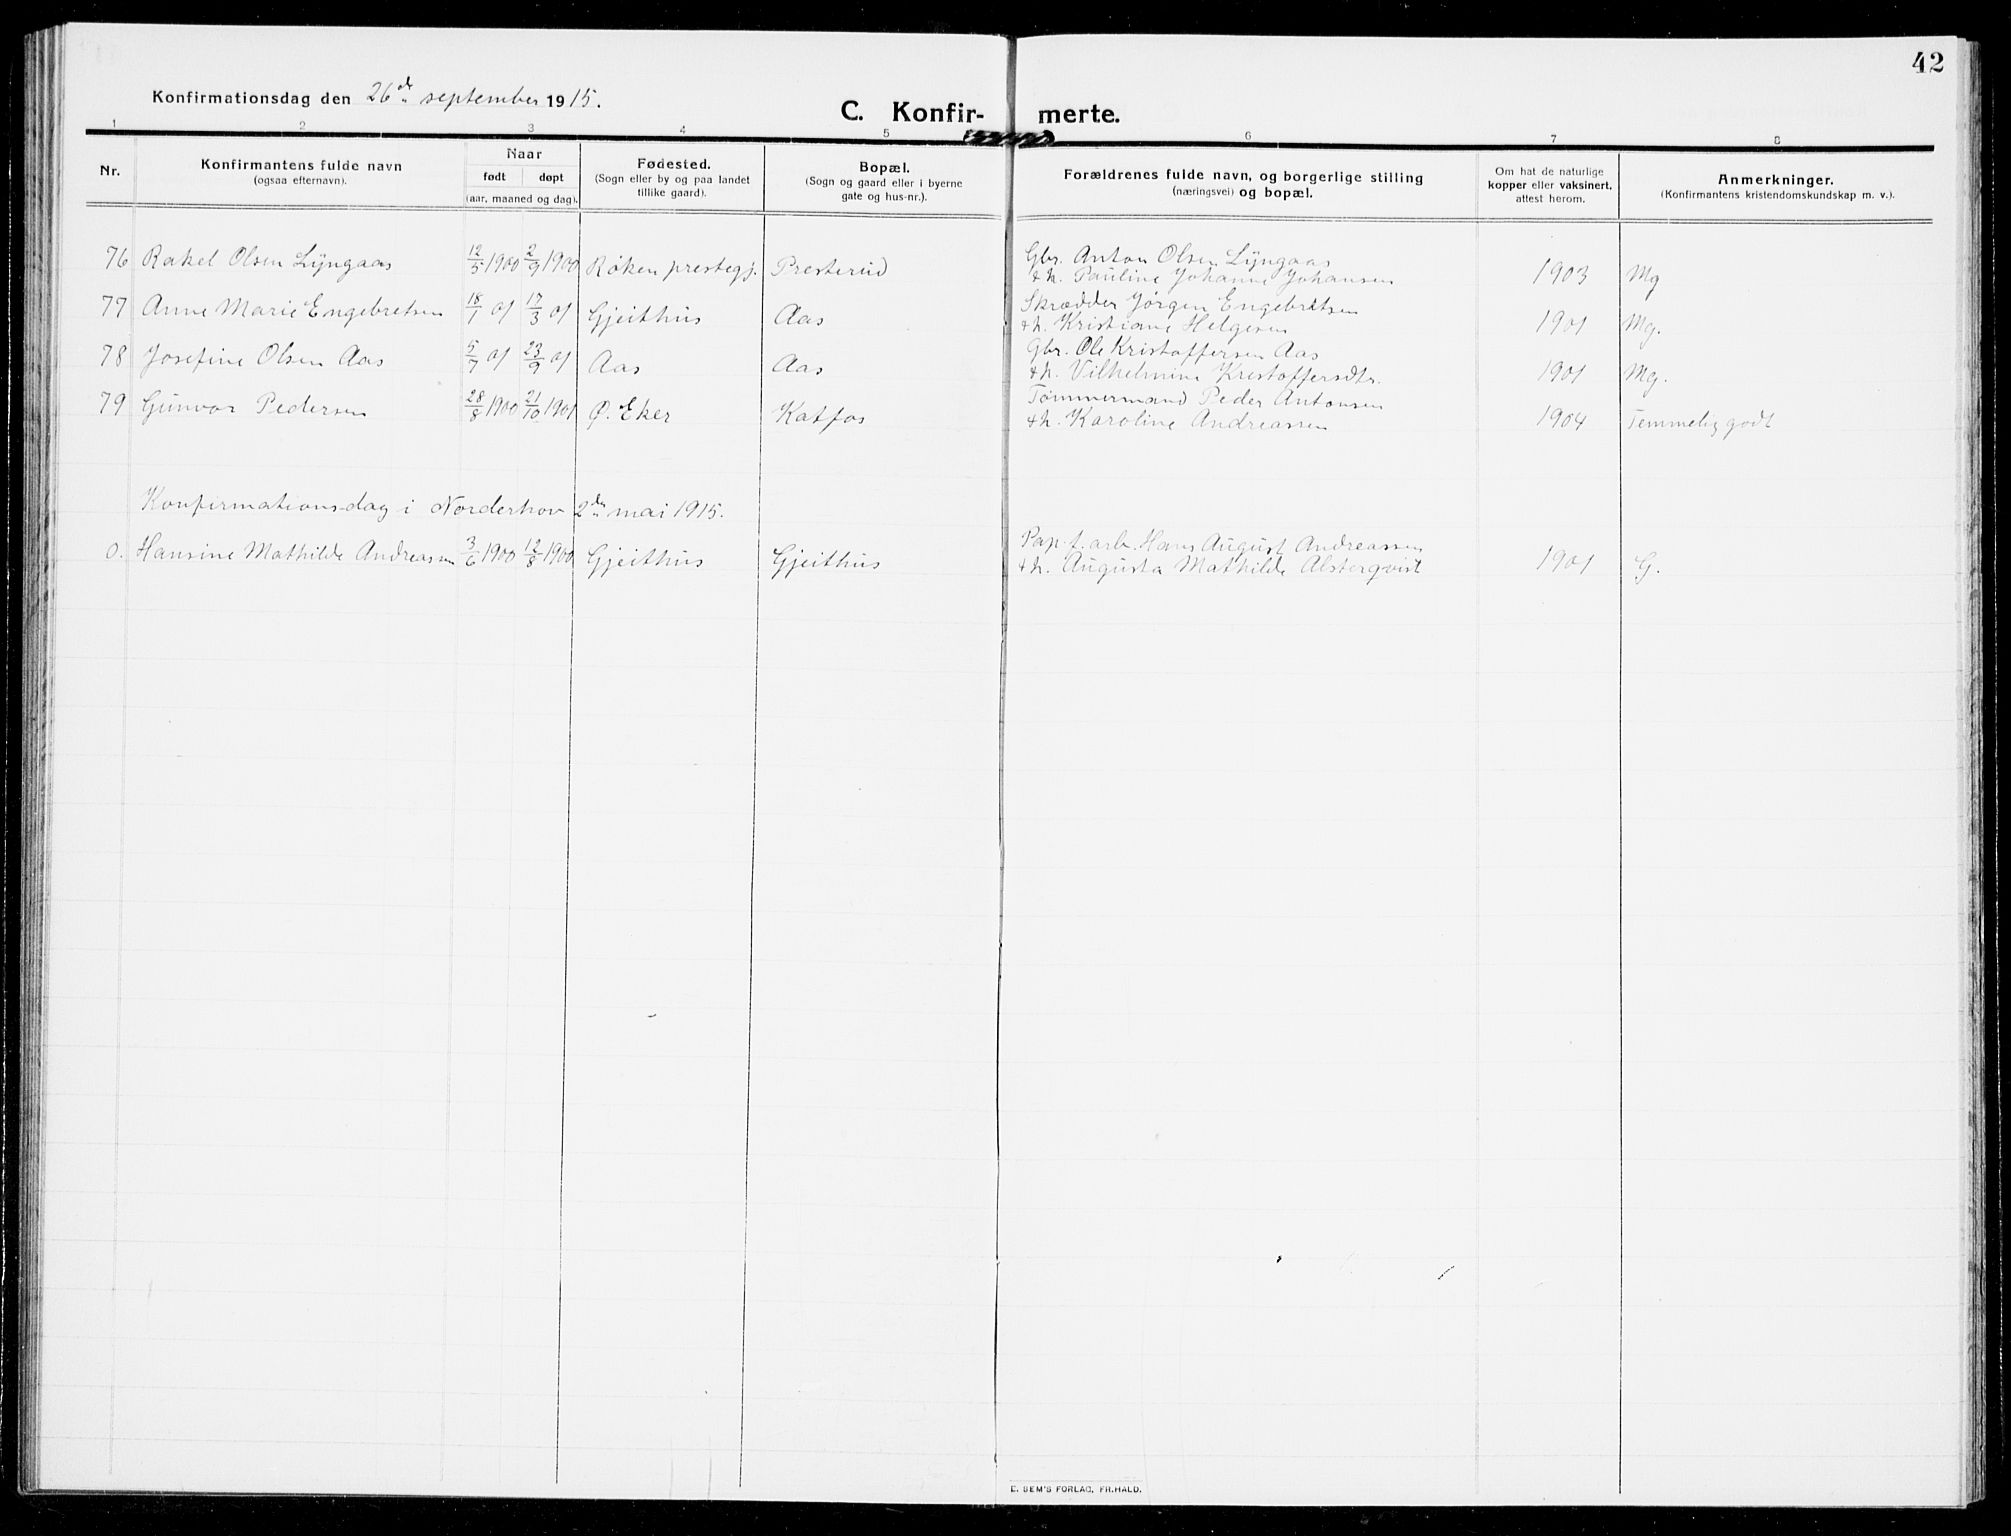 42
Konfirmationsdag den 26de september 1915.
C. Konfir- merte.
1 2 3 4 5 6 7 8
Nr.
Konfirmantens fulde navn
(ogsaa efternavn).
Naar
født døpt
(aar, maaned og dag).
Fødested.
(Sogn eller by og paa landet
tillike gaard).
Bopæl.
(Sogn og gaard eller i byerne
gate og hus-nr.).
Forældrenes fulde navn, og borgerlige stilling
(næringsvei) og bopæl.
Om hat de naturlige
kopper eller vaksinert,
attest herom.
Anmerkninger.
(Konfirmantens kristendomskundskap m. v.).
76 Rakel Olsen Lyngaas 12/5 1900 2/9 1900 Røken prestegj. Presterud Gbr. Anton Olsen Lyngaas
& h. Pauline Johanne Johansen 1903 Mg
77 Anne Marie Engebretsen 18/1 01 17/3 01 Gjeithus Aas Skrædder Jørgen Engebretsen
& h. Kristiane Helgesen 1901 Mg.
78 Josefine Olsen Aas 5/7 01 23/9 01 Aas Aas Gbr. Ole Kristoffersen Aas
& h. Vilhelmine Kristoffersdtr. 1901 Mg.
79 Gunvor Pedersen 28/8 1900 21/10 1901 Ø. Eker Katfos Tømmermand Peder Antonsen
& h. Karoline Andreassen 1904 Temmelig godt
Konfirmationsdag i Norderhov 2den mai 1915.
0. Hansine Mathilde Andreassen 3/6 1900 12/8 1900 Gjeithus Gjeithus Pap.f.arb. Hans August Andreassen
& h. Augusta Mathilde Alsterqvist 1901 G.
E. SEM'S FORLAG, FR.HALD.